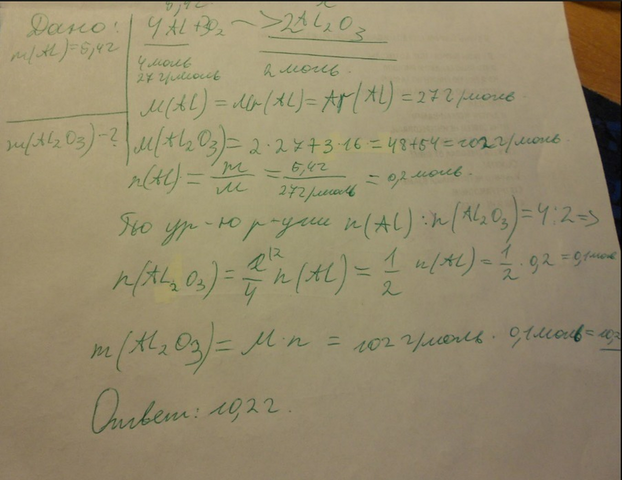 Дано:
m(Al)=5,4г
m(Al2O3)-?
4Al+3O2 —>2Al2O3
4моль
27г/моль
2моль.
M(Al)=Mr(Al)=Ar(Al)=27г/моль.
M(Al2O3)=2·27+3·16=48+54=102г/моль.
n(Al)= m/M = 5,4г/27г/моль = 0,2моль.
По ур-ю р-ции n(Al):n(Al2O3)=4:2=>
n(Al2O3)= 2/4 n(Al)= 1/2 n(Al)= 1/2 · 0,2=0,1моль
m(Al2O3)= M·n = 102г/моль · 0,1моль=10,2
Ответ: 10,2г.